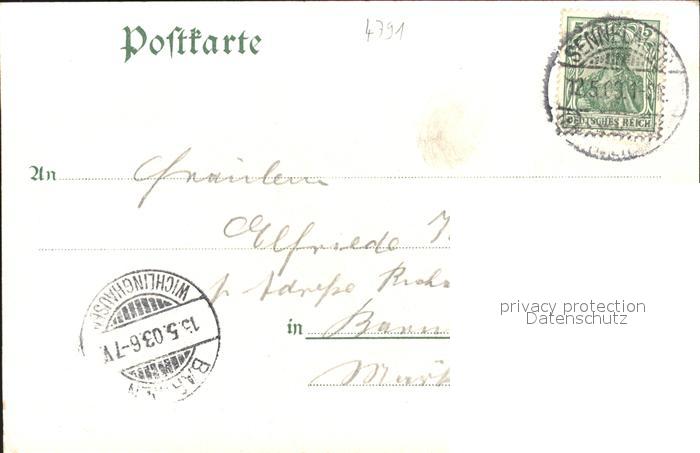 Postkarte
4791
5 5
SENNE
12.5.03
DEUTSCHES REICH
An Fräulein
Elfriede
p Adresse
in Barm
Märk
WICHLINGHAUSEN
13.5.03.6-7V.
BARMEN
privacy protection
Datenschutz